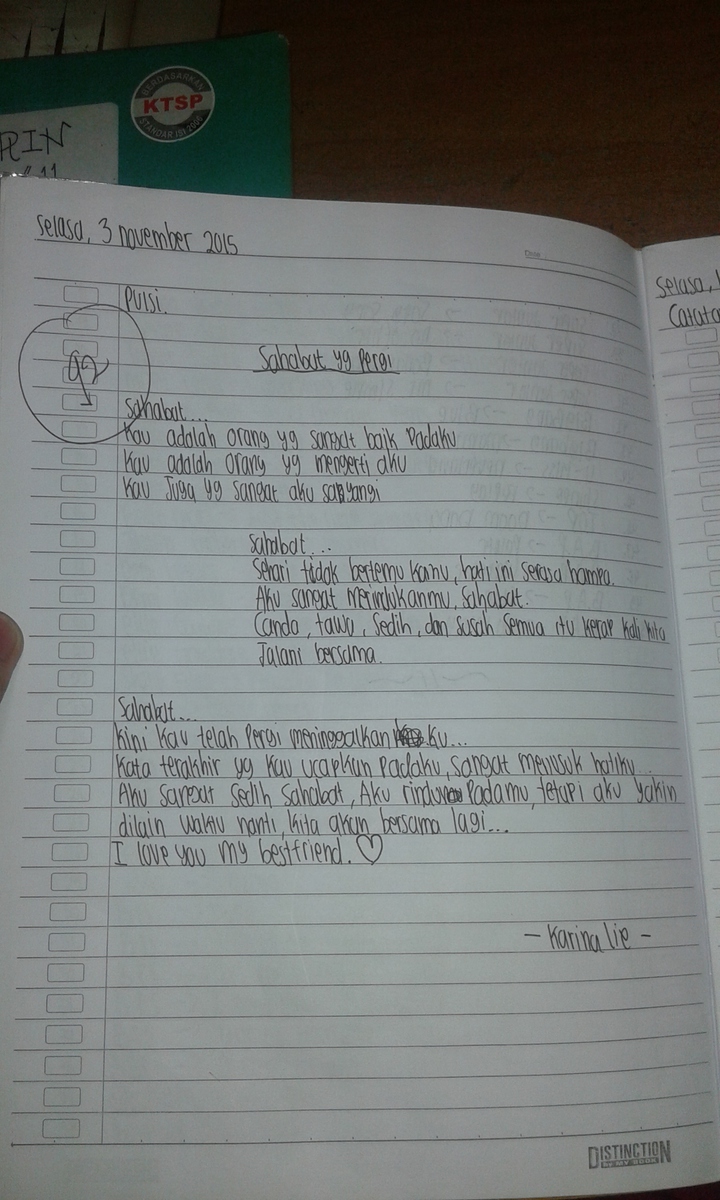 BERDASARKAN
KTSP
STANDAR ISI 2006
RIN
Selasa, 3 november 2015
Date
Puisi.
Sahabat yg Pergi
Sahabat...
Kau adalah orang yg sangat baik Padaku
Kau adalah orang yg mengerti aku
Kau Juga yg sangat aku sayangi
Sahabat...
Sehari tidak bertemu kamu, hati ini serasa hampa.
Aku sangat merindukanmu, Sahabat.
Canda, tawa, Sedih, dan susah semua itu kerap kali kita
Jalani bersama.
Sahabat...
Kini Kau telah Pergi meninggalkan ku...
Kata terakhir yg Kau ucapkan Padaku, Sangat menusuk hatiku...
Aku Sangat Sedih Sahabat, Aku rindu Padamu, tetapi aku yakin
dilain waktu nanti, kita akan bersama lagi...
I love you my bestfriend. ♡
- Karina Lie -
DISTINCTION
Selasa,
Catata